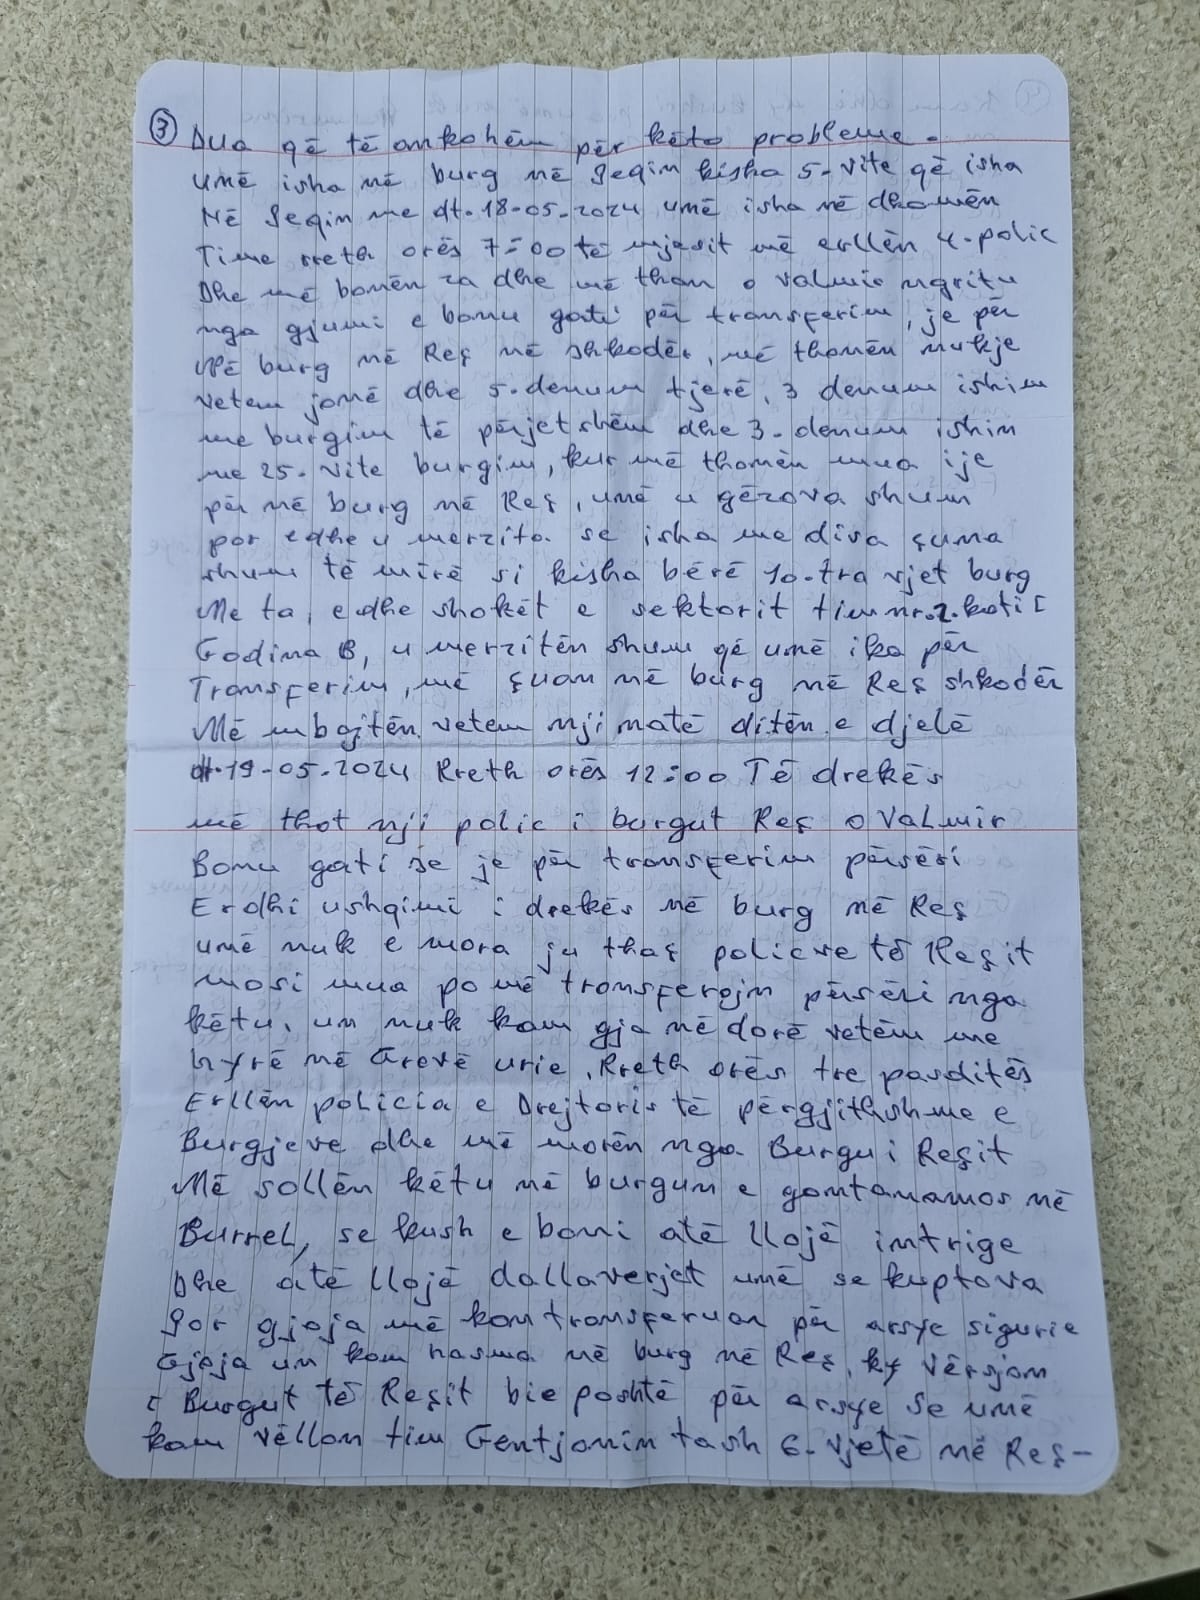 ③ Dua që të ankohëm për këto probleme.
Umë isha në burg në Peqin kisha 5-vite që isha
Në Peqin me dt. 18-05-2024 umë isha në dhomën
Time rreth orës 7=00 të mjesit më erllën 4-polic
Dhe më bonën za dhe më than o valmir ngritu
nga gjumi e bonu gati për transferim, je për
Në burg në Reç në shkodër, më thomën nukje
vetem jonë dhe 5-denum tjerë, 3 denum ishin
me burgim të përjetshëm dhe 3-denum ishin
me 25-vite burgim, kur më thomën mua ije
për në burg në Reç, umë u gëzova shum
por edhe u merzita se isha me disa çuna
shum të mirë si kisha bërë 10-tra vjet burg
Me ta, edhe shokët e sektorit tim nr.2.kati I
Godina B, u merzitën shum që umë ika për
Transferim, më çuan në burg në Reç shkodër
Më mbajtën vetem nji natë ditën e djelë
dt.19-05-2024 Rreth orës 12:00 Të drekës
më thot nji polic i burgut Reç o Valmir
Bonu gati se je për transferim përsëri
Erdhi ushqimi i drekës në burg në Reç
umë nuk e mora ju thaç policve të Reçit
mosi mua po më transferojn përsëri nga
këtu, un nuk kam gja në dorë vetëm me
hyrë në Grevë urie, Rreth orës tre pasditës
Erllën policia e Drejtoris të përgjithshme e
Burgjeve dhe më morën nga Burgu i Reçit
Më sollën këtu në burgun e gontanamos në
Burrel, se kush e boni atë llojë intrige
Dhe atë llojë dallaverjet umë se kuptova
Por gjoja më kon transferuar për arsye sigurie
Gjoja un kam hasma në burg në Reç, ky vërsjon
i Burgut të Reçit bie poshtë për arsye se umë
kam vëllon tim Gentjonin tash 6-vjetë në Reç-